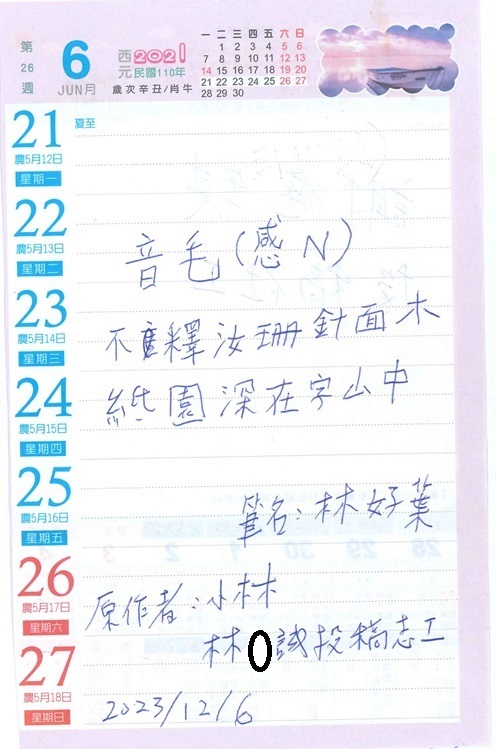 第26週
6 JUN月
西元2021
民國110年
歲次辛丑/肖牛
一 二 三 四 五 六 日
1 2 3 4 5 6
7 8 9 10 11 12 13
14 15 16 17 18 19 20
21 22 23 24 25 26 27
28 29 30
21 夏至
農5月12日
星期一
22
農5月13日
星期二
音毛(感N)
23
農5月14日
星期三
不 釋汝珊針面木
24
農5月15日
星期四
紙園深在字山中
25
農5月16日
星期五
筆名:林好葉
26
農5月17日
星期六
原作者:小林
林 試投稿志工
27
農5月18日
星期日
2023/12/6